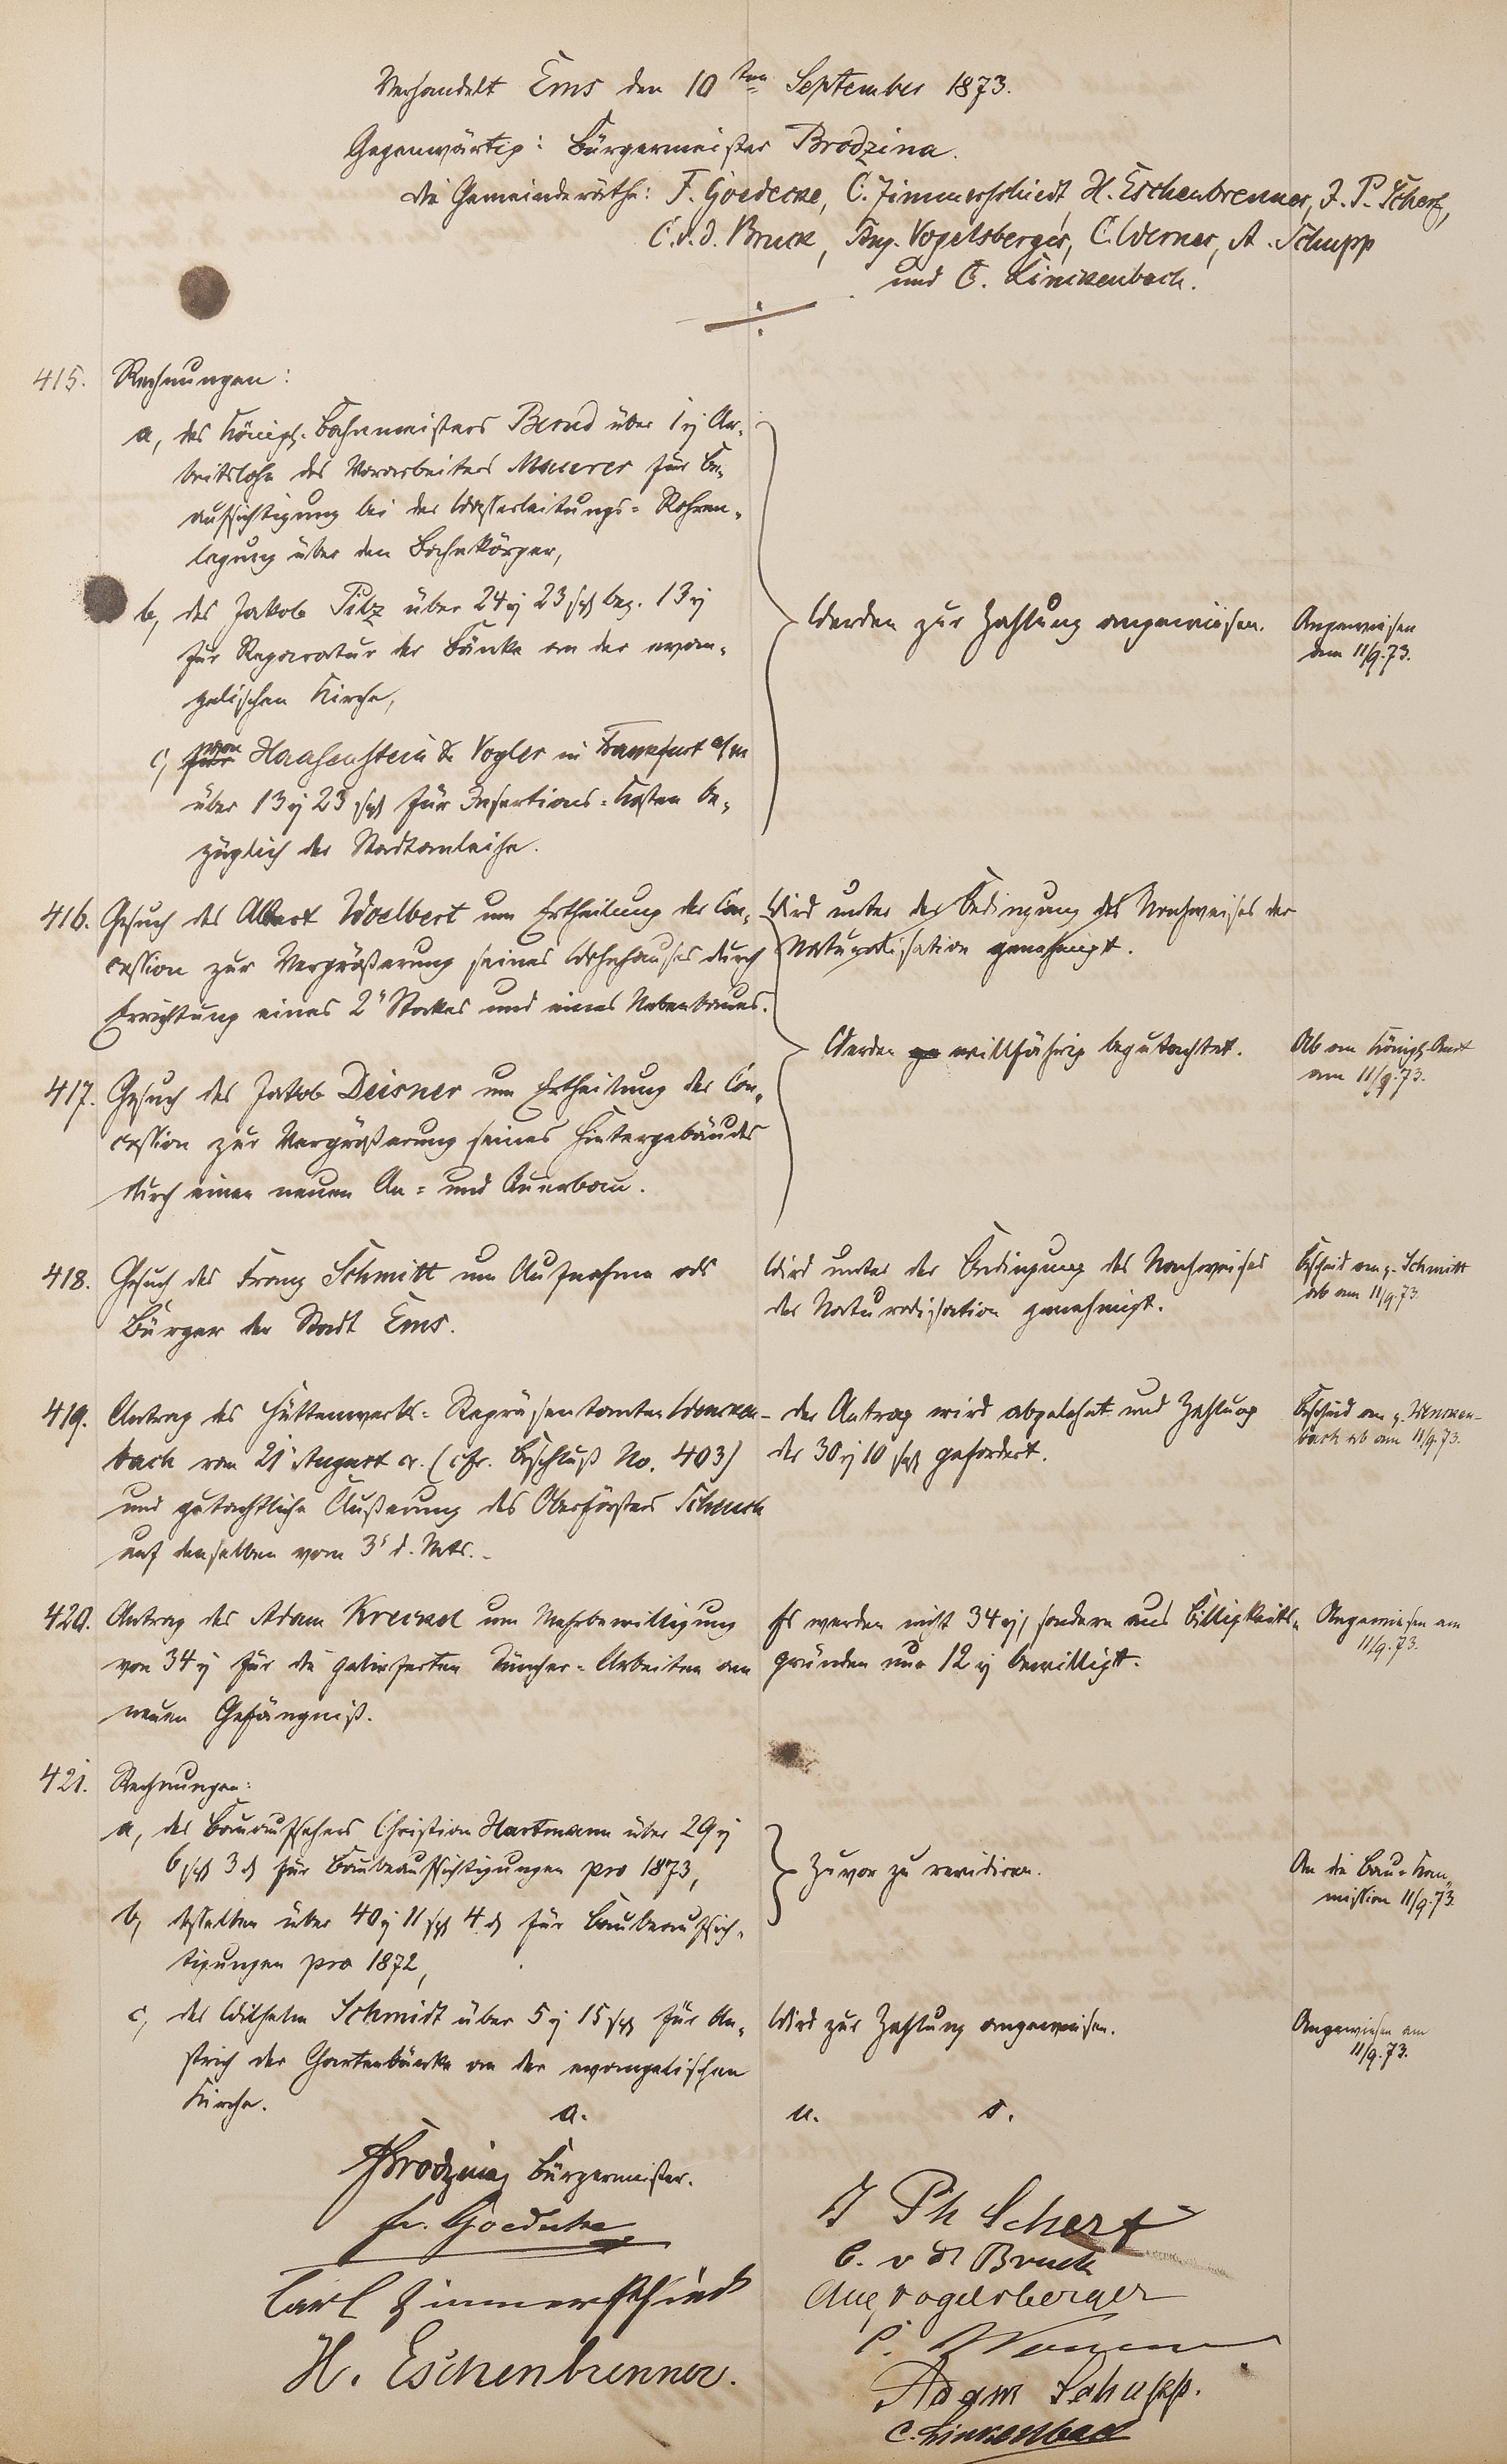 Verhandelt Ems den 10ten September 1873.
Gegenwärtig: Bürgermeister Brodzina.
die Gemeinderäthe: F. Goedecke, C. Zimmerschiedt, H. Eschenbrenner, J. P. Scherf,
C. v. d. Bruck, Aug. Vogelsberger, C. Werner, A. Schupp
und C. Linckenbach.
415. Rechnungen:
a, des Königl. Bahnmeisters Brond über 1 rg Ar-
beitslohn des Vorarbeiters Maurer für Be-
aufsichtigung bei der Wasserleitungs-Rohren-
legung über den Bahnkörper,
b, des Jakob Pilz über 24 rg 23 sgl bez. 13 rg
für Reparatur der Bänke an der evan-
gelischen Kirche,
c, für von Haasenstein & Vogler in Frankfurt a/m
über 13 rg 23 sgl für Insertions-Kosten be-
züglich der Stadtanleihe.
Werden zur Zahlung angewiesen.
Angewiesen
den 11/9.73.
416. Gesuch des Albert Woelbert um Ertheilung der Con-
cession zur Vergrößerung seines Wohnhauses durch
Errichtung eines 2ten Stockes und eines Nebenbaues.
Wird unter der Bedingung des Nachweises der
Naturalisation genehmigt.
417. Gesuch des Jakob Deisner um Ertheilung der Con-
cession zur Vergrößerung seines Hintergebäudes
durch einen neuen An- und Querbau.
Werden ge willfährig begutachtet.
Ab an Königl. Amt
am 11/9.73.
418. Gesuch des Franz Schmitt um Aufnahme als
Bürger der Stadt Ems.
Wird unter der Bedingung des Nachweises
der Naturalisation genehmigt.
Bescheid an p. Schmitt
ab am 11/9.73.
419. Antrag des Hüttenwerks-Repräsentanten Wencken-
bach vom 21ten August cr. (cfr. Beschluß No. 403)
und gutachtliche Äußerung des Oberförsters Schenck
auf denselben vom 3ten d. Mts.
der Antrag wird abgelehnt und Zahlung
der 30 rg 10 sgl gefordert.
Bescheid an p. Wencken-
bach ab am 11/9.73.
420. Antrag des Adam Kreickel um Mehrbewilligung
von 34 rg für die gelieferten Tüncher-Arbeiten am
neuen Gefängniß.
Es werden nicht 34 rg, sondern aus Billigkeits-
gründen nur 12 rg bewilligt.
Angewiesen am
11/9.73.
421. Rechnungen:
a, des Bauaufsehers Christian Hartmann über 29 rg
6 sgl 3 d für Baubeaufsichtigungen pro 1873,
b, desselben über 40 rg 11 sgl 4 d für Baubeaufsich-
tigungen pro 1872,
Zuvor zu revidiren.
An die Bau-Kom-
mission 11/9.73.
c, des Wilhelm Schmidt über 5 rg 15 sgl für An-
strich der Gartenbänke an der evangelischen
Kirche.
Wird zur Zahlung angewiesen.
Angewiesen am
11/9.73.
a. u. s.
Brodzina, Bürgermeister.
Fr. Goedecke
Carl Zimmerschied
H. Eschenbrenner.
J Ph Scherf
C. v d Bruck
Aug Vogelsberger
C. Werner
Adam Schupp.
C. Linkenbach